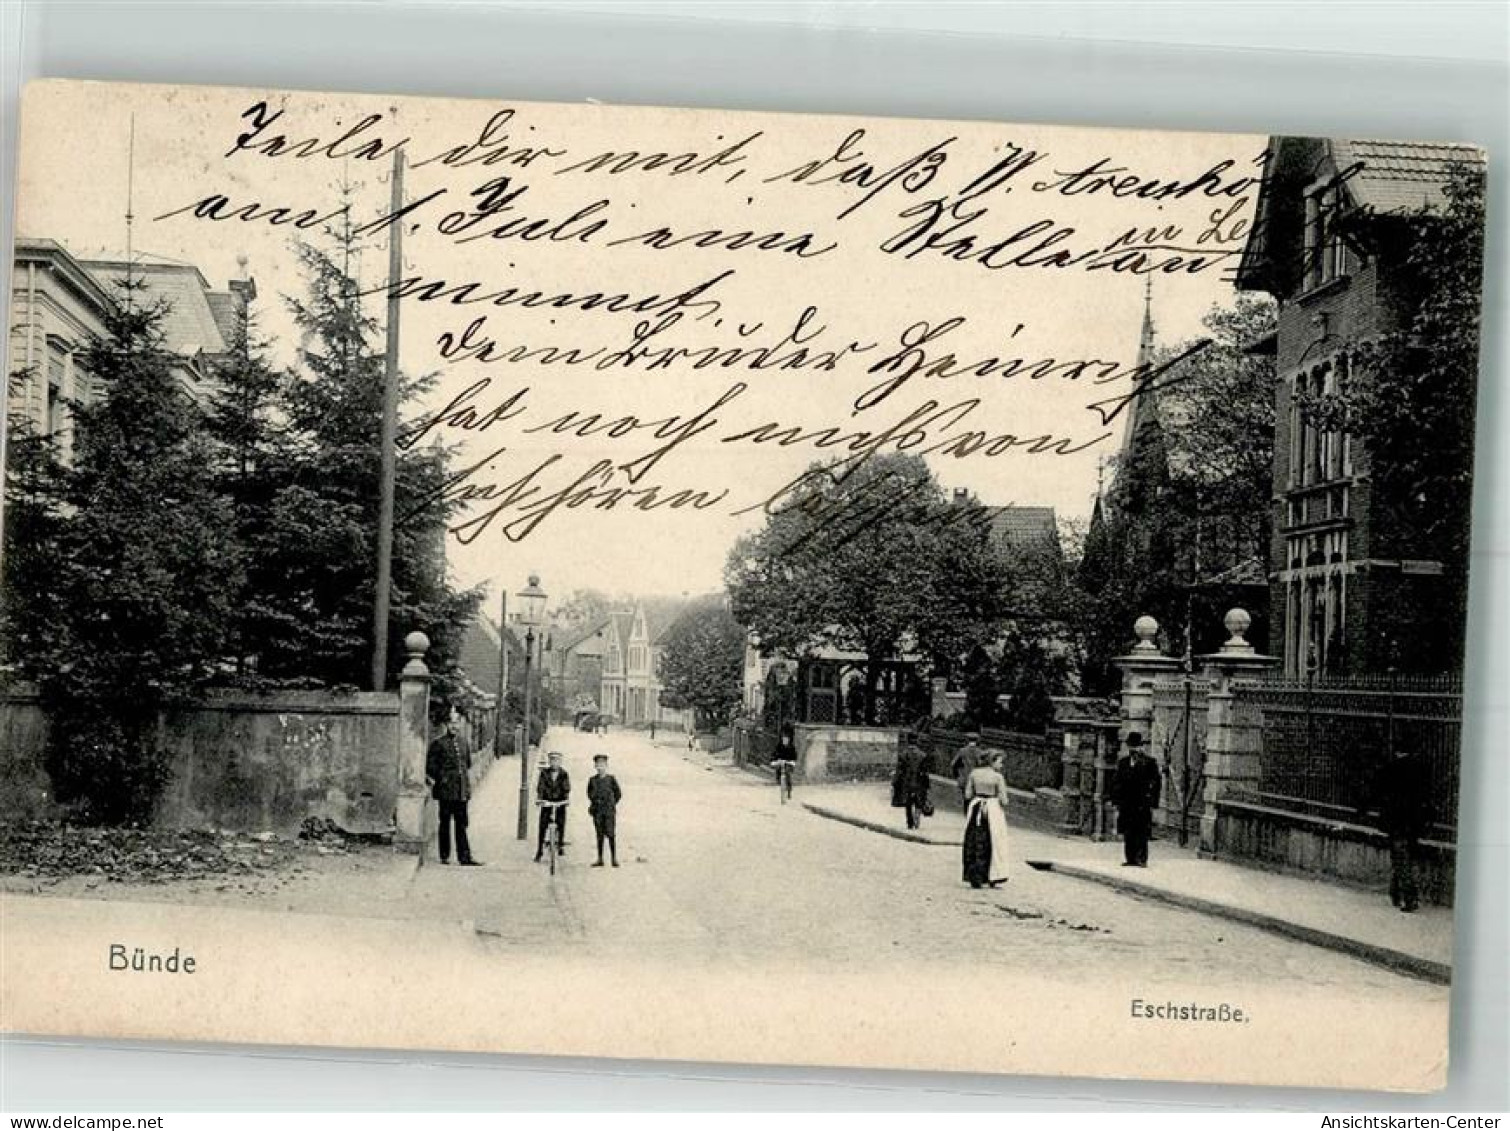 Teile dir mit, daß W.
am 1. Juli eine Stelle in
an
nimmt,
dein Brüder Heinrig
hat noch nichs von
sich hören lassen
Bünde
Eschstraße.
delcampe.net
Ansichtskarten-Center